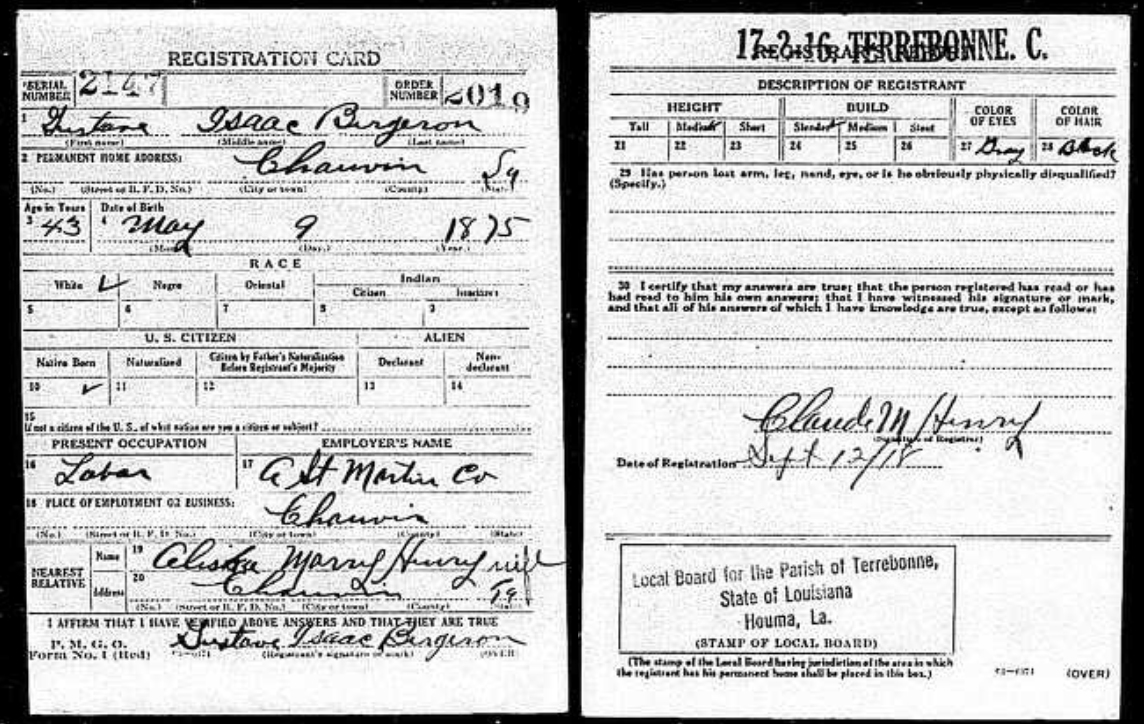 REGISTRATION CARD
SERIAL NUMBER 2147 ORDER NUMBER 2019
1 Gustave Isaac Bergeron
(First name) (Middle name) (Last name)
2 PERMANENT HOME ADDRESS:
Chauvin La
(No.) (Street or R. F. D. No.) (City or town) (County) (State)
Age in Years Date of Birth
3 43 4 May 9 1875
(Month) (Day) (Year)
RACE
White ✓ Negro Oriental Indian
Citizen
5 6 7 8 9
U. S. CITIZEN ALIEN
Native Born Naturalized Citizen by Father's Naturalization Before Registrant's Majority Declarant Non-declarant
10 ✓ 11 12 13 14
15
If not a citizen of the U. S., of what nation are you a citizen or subject?
PRESENT OCCUPATION EMPLOYER'S NAME
16 Labor 17 A St Martin Co
18 PLACE OF EMPLOYMENT OR BUSINESS:
Chauvin
(No.) (Street or R. F. D. No.) (City or town) (County) (State)
NEAREST RELATIVE Name 19 Henry wife
Address 20 Chauvin La
(No.) (Street or R. F. D. No.) (City or town) (County) (State)
I AFFIRM THAT I HAVE VERIFIED ABOVE ANSWERS AND THAT THEY ARE TRUE
P. M. G. O.
Form No. 1 (Red) Gustave Isaac Bergeron
(Registrant's signature or mark) (OVER)
17-2-16, TERREBONNE. C.
REGISTRAR'S REPORT
DESCRIPTION OF REGISTRANT
HEIGHT BUILD COLOR OF EYES COLOR OF HAIR
Tall Medium ✓ Short Slender ✓ Medium Stout
21 22 23 24 25 26 27 Gray 28 Black
29 Has person lost arm, leg, hand, eye, or is he obviously physically disqualified?
(Specify.)
30 I certify that my answers are true; that the person registered has read or has
had read to him his own answers; that I have witnessed his signature or mark,
and that all of his answers of which I have knowledge are true, except as follows:
Claude M Henry
(Signature of Registrar)
Date of Registration Sept 12/18
Local Board for the Parish of Terrebonne,
State of Louisiana
Houma, La.
(STAMP OF LOCAL BOARD)
(The stamp of the Local Board having jurisdiction of the area in which
the registrant has his permanent home shall be placed in this box.)
(OVER)